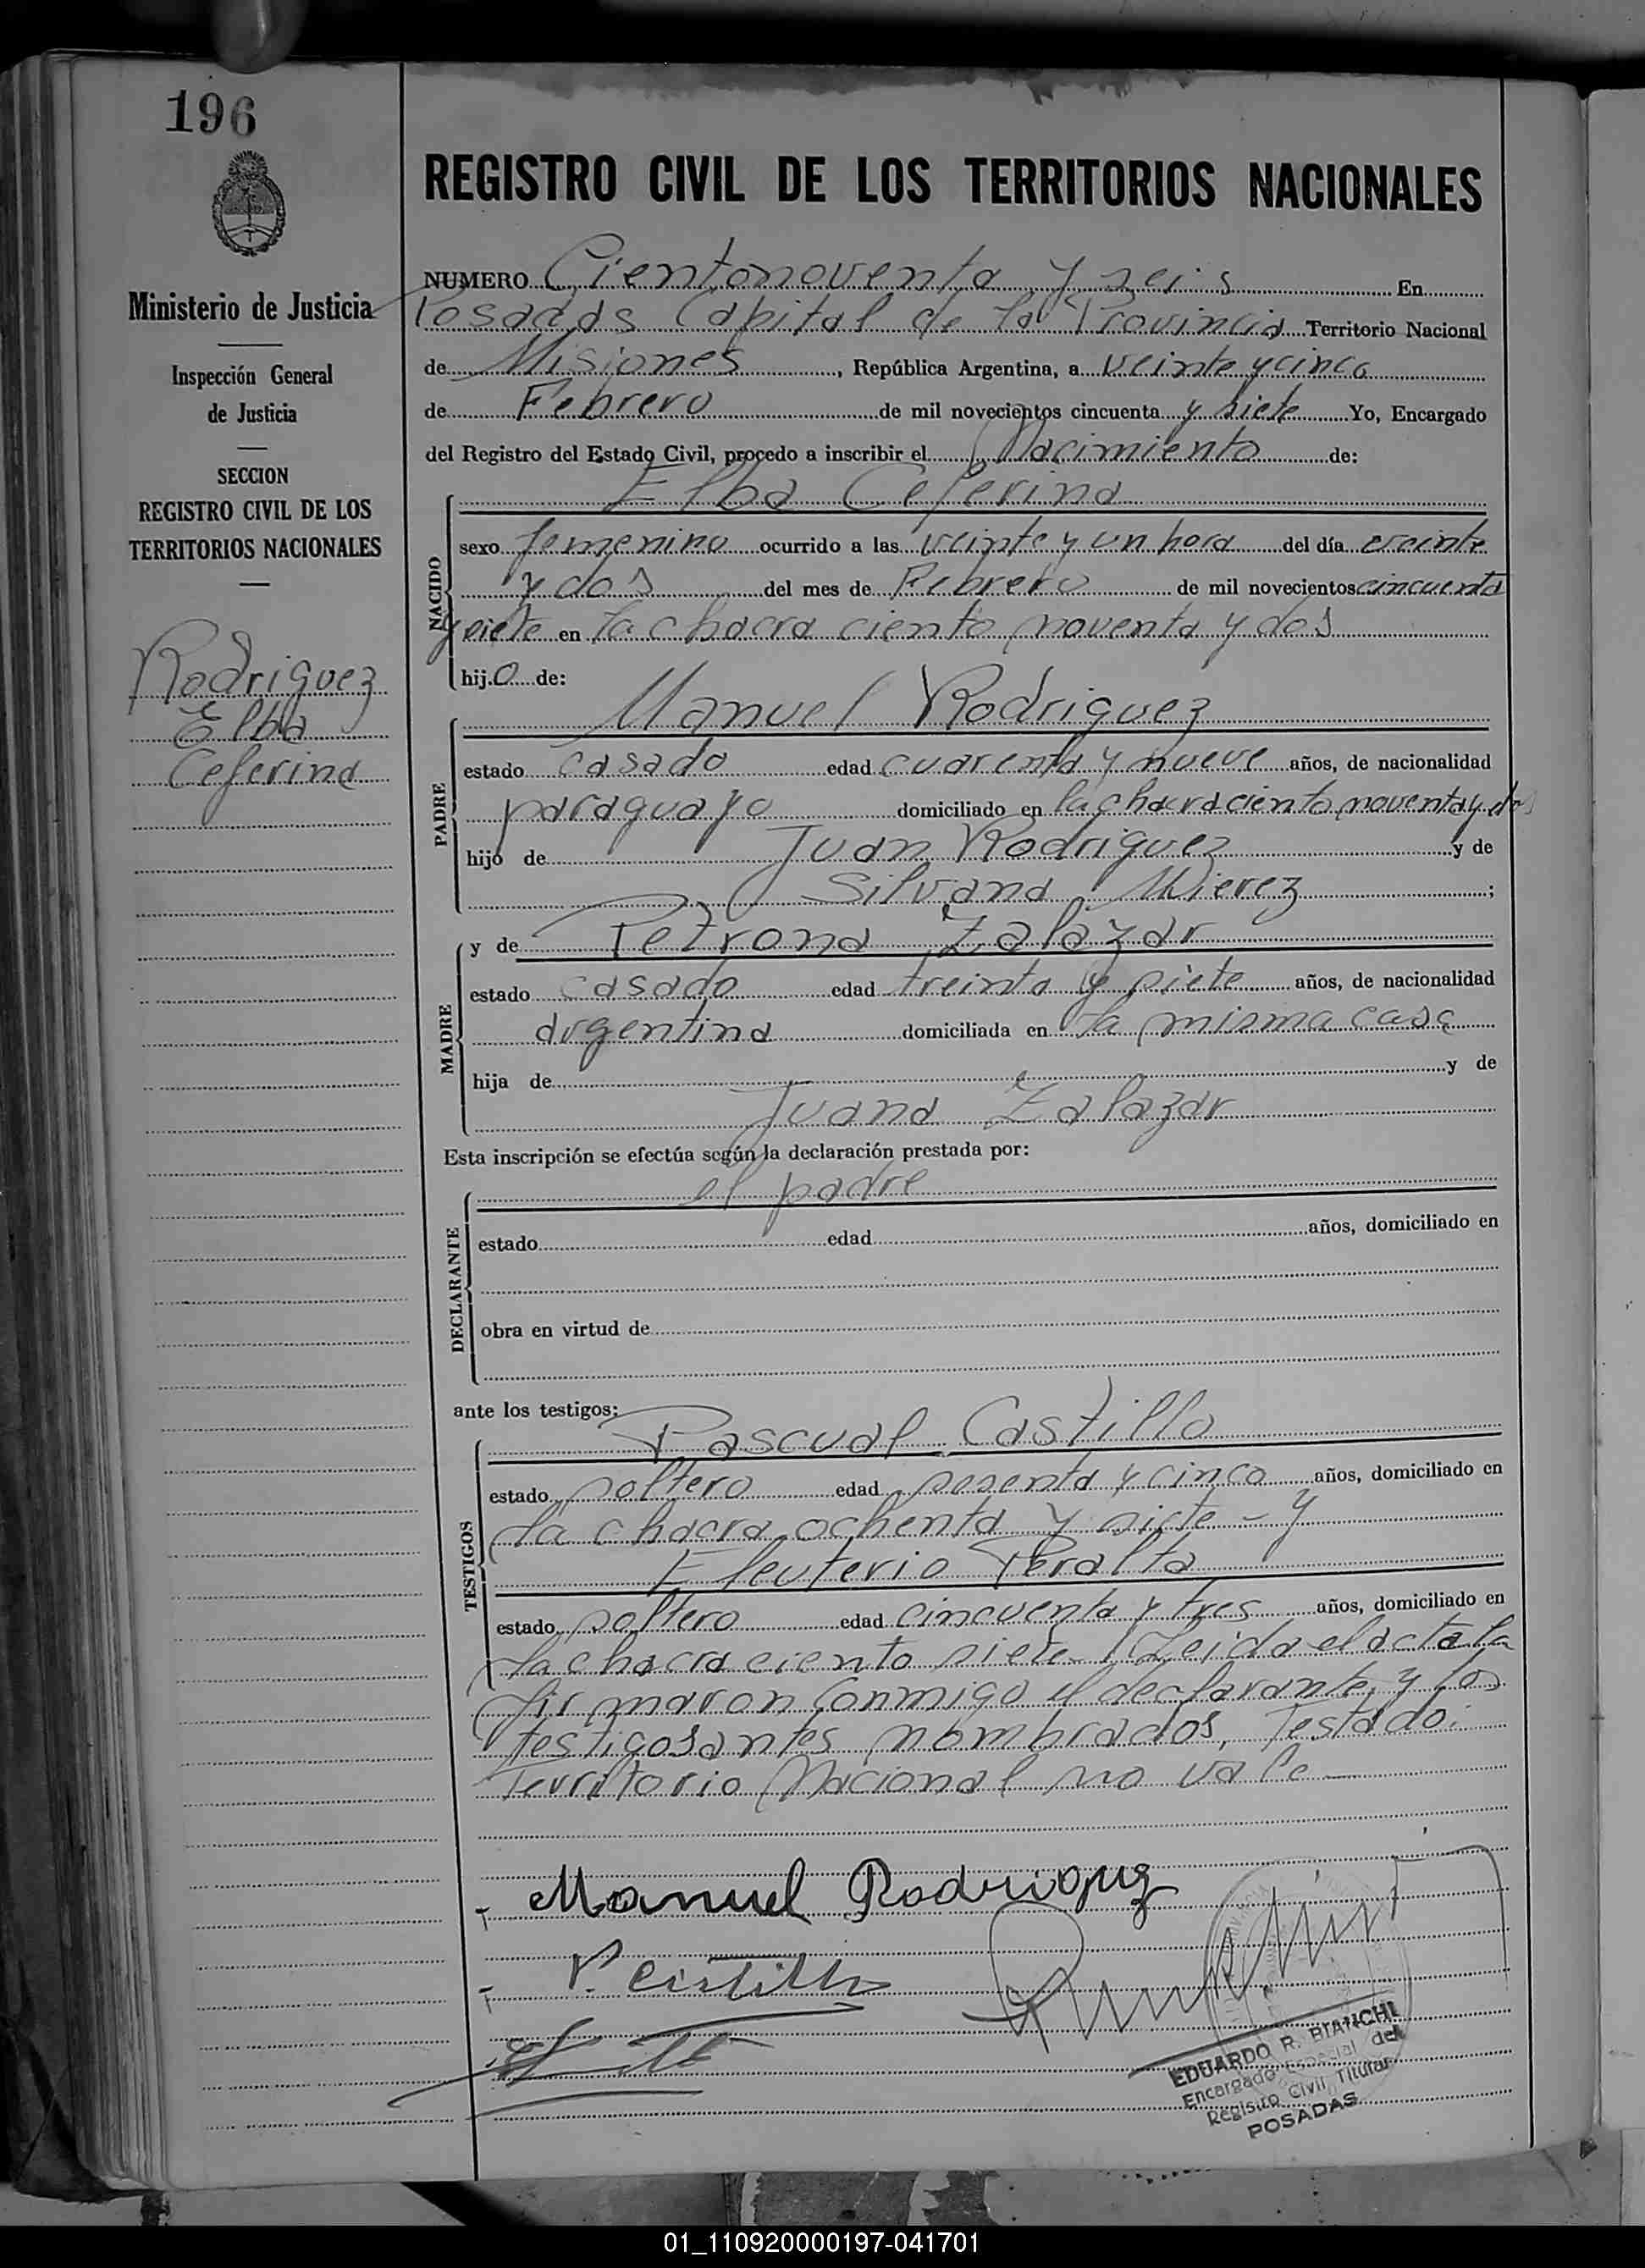 196
Ministerio de Justicia
Inspección General
de Justicia
SECCION
REGISTRO CIVIL DE LOS
TERRITORIOS NACIONALES
Rodriguez
Elba
Ceferina
REGISTRO CIVIL DE LOS TERRITORIOS NACIONALES
NUMERO Cientonoventa y seis En
Posadas Capital de la Provincia Territorio Nacional
de Misiones, República Argentina, a veinte y cinco
de Febrero de mil novecientos cincuenta y siete Yo, Encargado
del Registro del Estado Civil, procedo a inscribir el Nacimiento de:
Elba Ceferina
NACIDO
sexo femenino ocurrido a las veinte y un hora del día veinte
y dos del mes de Febrero de mil novecientos cincuenta
y siete en la chacra ciento noventa y dos
hijo de:
Manuel Rodriguez
PADRE
estado casado edad cuarenta y nueve años, de nacionalidad
paraguayo domiciliado en la chacra ciento noventa y dos
hijo de Juan Rodriguez y de
Silvana Mierez;
y de Petrona Zalazar
MADRE
estado casado edad treinta y siete años, de nacionalidad
argentina domiciliada en la misma casa
hija de y de
Juana Zalazar
Esta inscripción se efectúa según la declaración prestada por:
el padre
DECLARANTE
estado edad años, domiciliado en
obra en virtud de
ante los testigos:
Pascual Castillo
TESTIGOS
estado soltero edad sesenta y cinco años, domiciliado en
la chacra ochenta y siete - y
Eleuterio Peralta
estado soltero edad cincuenta y tres años, domiciliado en
la chacra ciento siete Leida el acta la
firmaron conmigo el declarante y los
testigos antes nombrados, Testado:
Territorio Nacional no vale
Manuel Rodriguez
P. Castillo
EDUARDO R. BIANCHI
Encargado Especial del
Registro Civil Titular
POSADAS
01_110920000197-041701